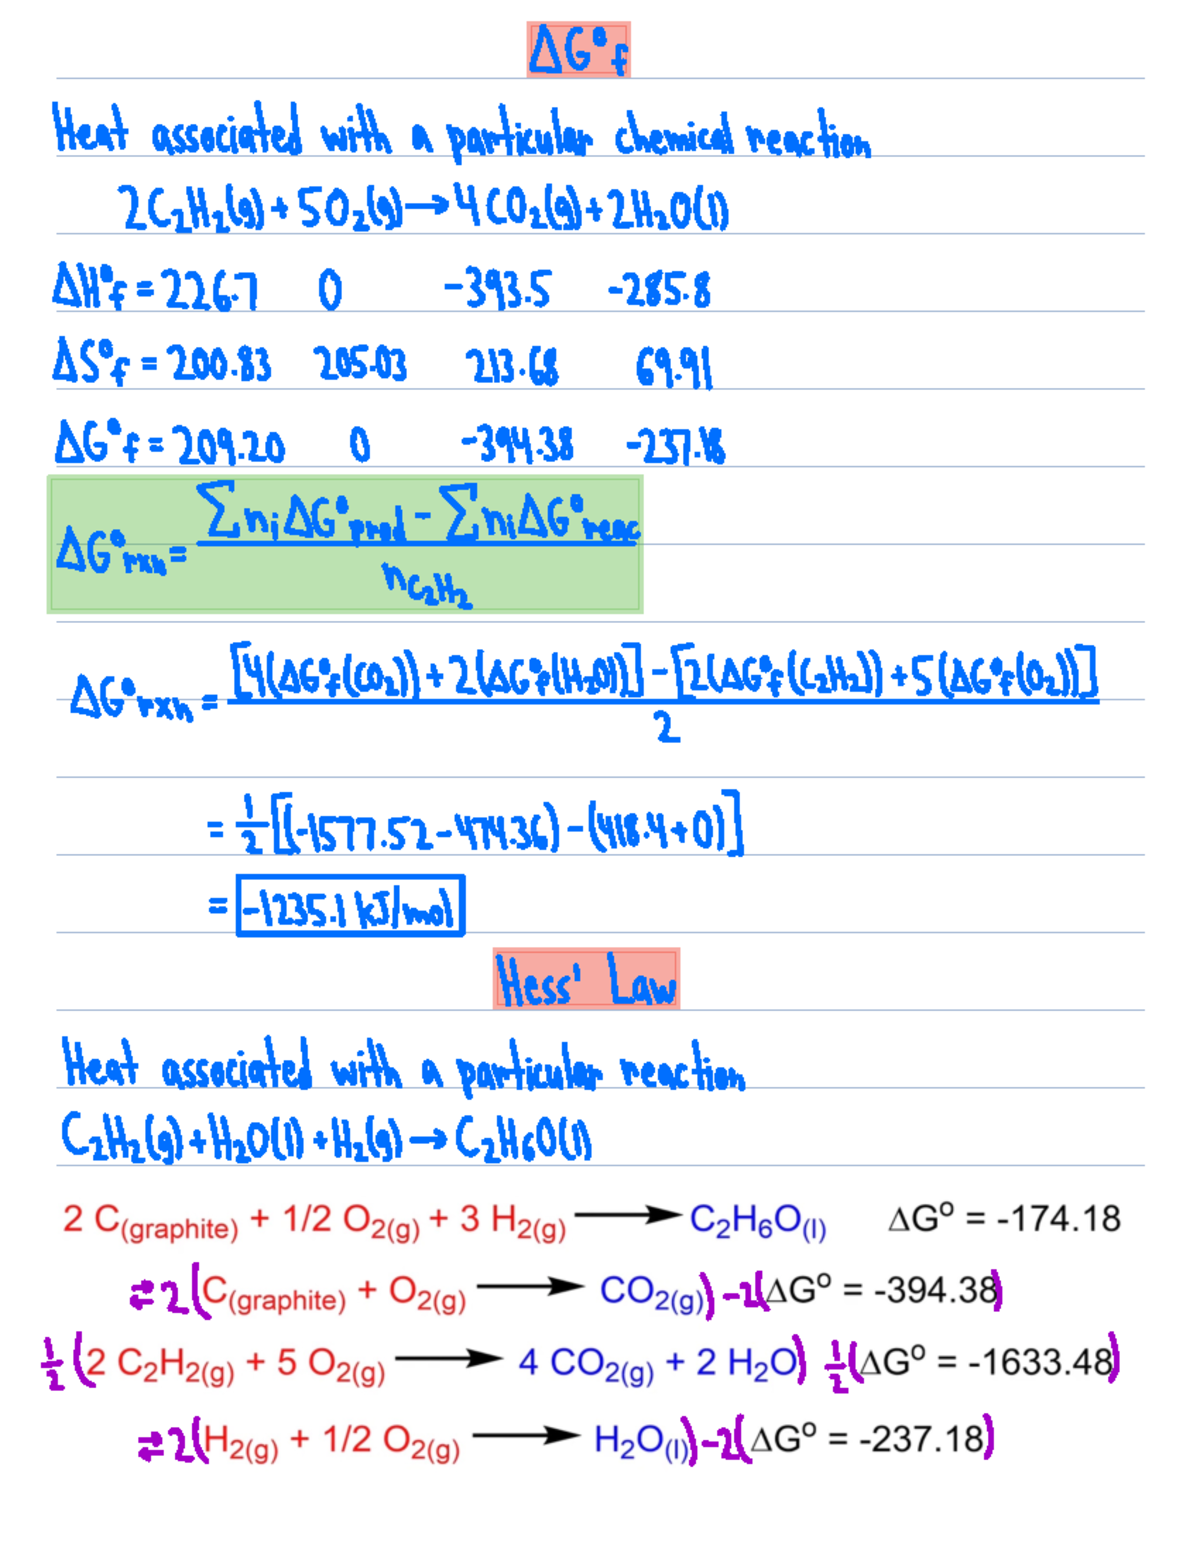 ΔG°f
Heat associated with a particular chemical reaction
2C₂H₂(g) + 5O₂(g) → 4CO₂(g) + 2H₂O(l)
ΔH°f = 226.7 0 -393.5 -285.8
ΔS°f = 200.83 205.03 213.68 69.91
ΔG°f = 209.20 0 -394.38 -237.18
ΔG°rxn = (ΣniΔG°prod - ΣniΔG°reac) / nC₂H₂
ΔG°rxn = [4(ΔG°f(CO₂)) + 2(ΔG°f(H₂O))] - [2(ΔG°f(C₂H₂)) + 5(ΔG°f(O₂))] / 2
= 1/2 [(-1577.52 - 474.36) - (418.4 + 0)]
= -1235.1 kJ/mol
Hess' Law
Heat associated with a particular reaction
C₂H₂(g) + H₂O(l) + H₂(g) → C₂H₆O(l)
2 C(graphite) + 1/2 O₂(g) + 3 H₂(g) → C₂H₆O(l) ΔG° = -174.18
⇄ 2(C(graphite) + O₂(g) → CO₂(g)) -2(ΔG° = -394.38)
1/2 (2 C₂H₂(g) + 5 O₂(g) → 4 CO₂(g) + 2 H₂O) 1/2 (ΔG° = -1633.48)
⇄ 2(H₂(g) + 1/2 O₂(g) → H₂O(l)) -2(ΔG° = -237.18)